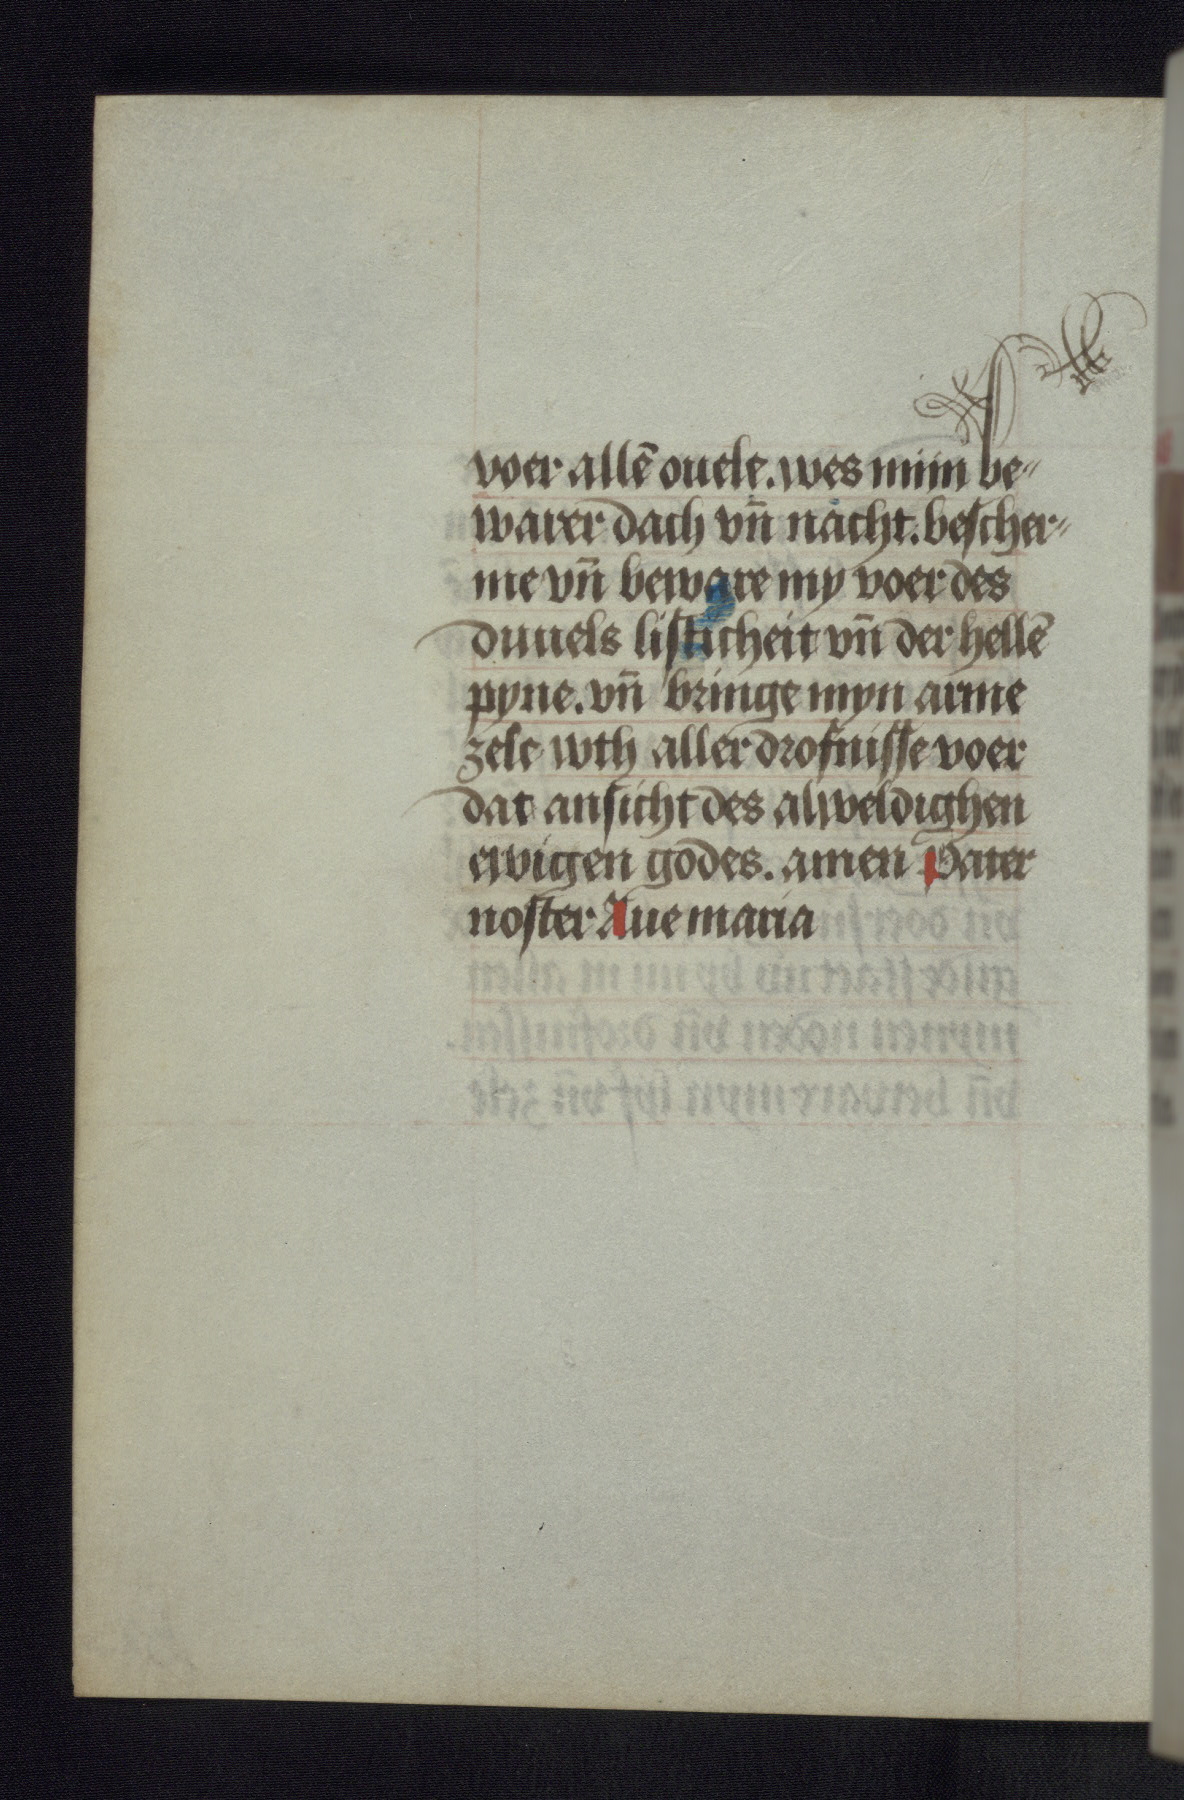 voer allē ouele. wes miin be-
warer dach vn̄ nacht. bescher-
me vn̄ beware my voer des
duuels listicheit vn̄ der hellē
pyne. vn̄ bringe myn arme
zele wth aller drofnisse voer
dat ansicht des alweldighen
ewigen godes. amen Pater
noster Aue maria